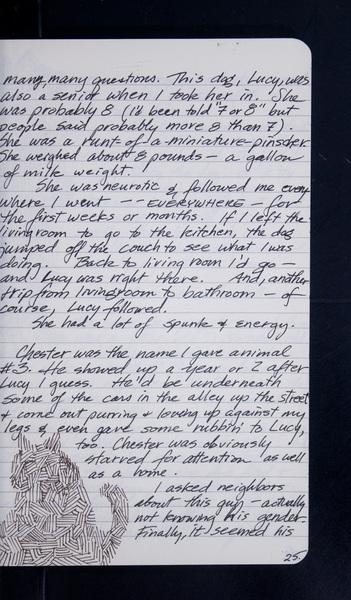 many, many questions. This dog, Lucy, was
also a senior when I took her in. She
was probably 8 (I'd been told "7 or 8" but
people said probably more 8 than 7).
She was a runt-of-a-miniature-pinscher.
She weighed about 8 pounds – a gallon
of milk weight.
She was neurotic & followed me every
where I went -- EVERYWHERE – for
the first weeks or months. If I left the
livingroom to go to the kitchen, the dog
jumped off the couch to see what I was
doing. Back to living room I'd go –
and Lucy was right there. And, another
trip from livingroom to bathroom – of
course, Lucy followed.
She had a lot of spunk & energy.
Chester was the name I gave animal
#3. He showed up a year or 2 after
Lucy I guess. He'd be underneath
some of the cars in the alley up the street
& come out purring & loving up against my
legs & even gave some rubbin' to Lucy,
too. Chester was obviously
starved for attention as well
as a home.
I asked neighbors
about this guy – actually
not knowing his gender.
Finally, it seemed his
25.